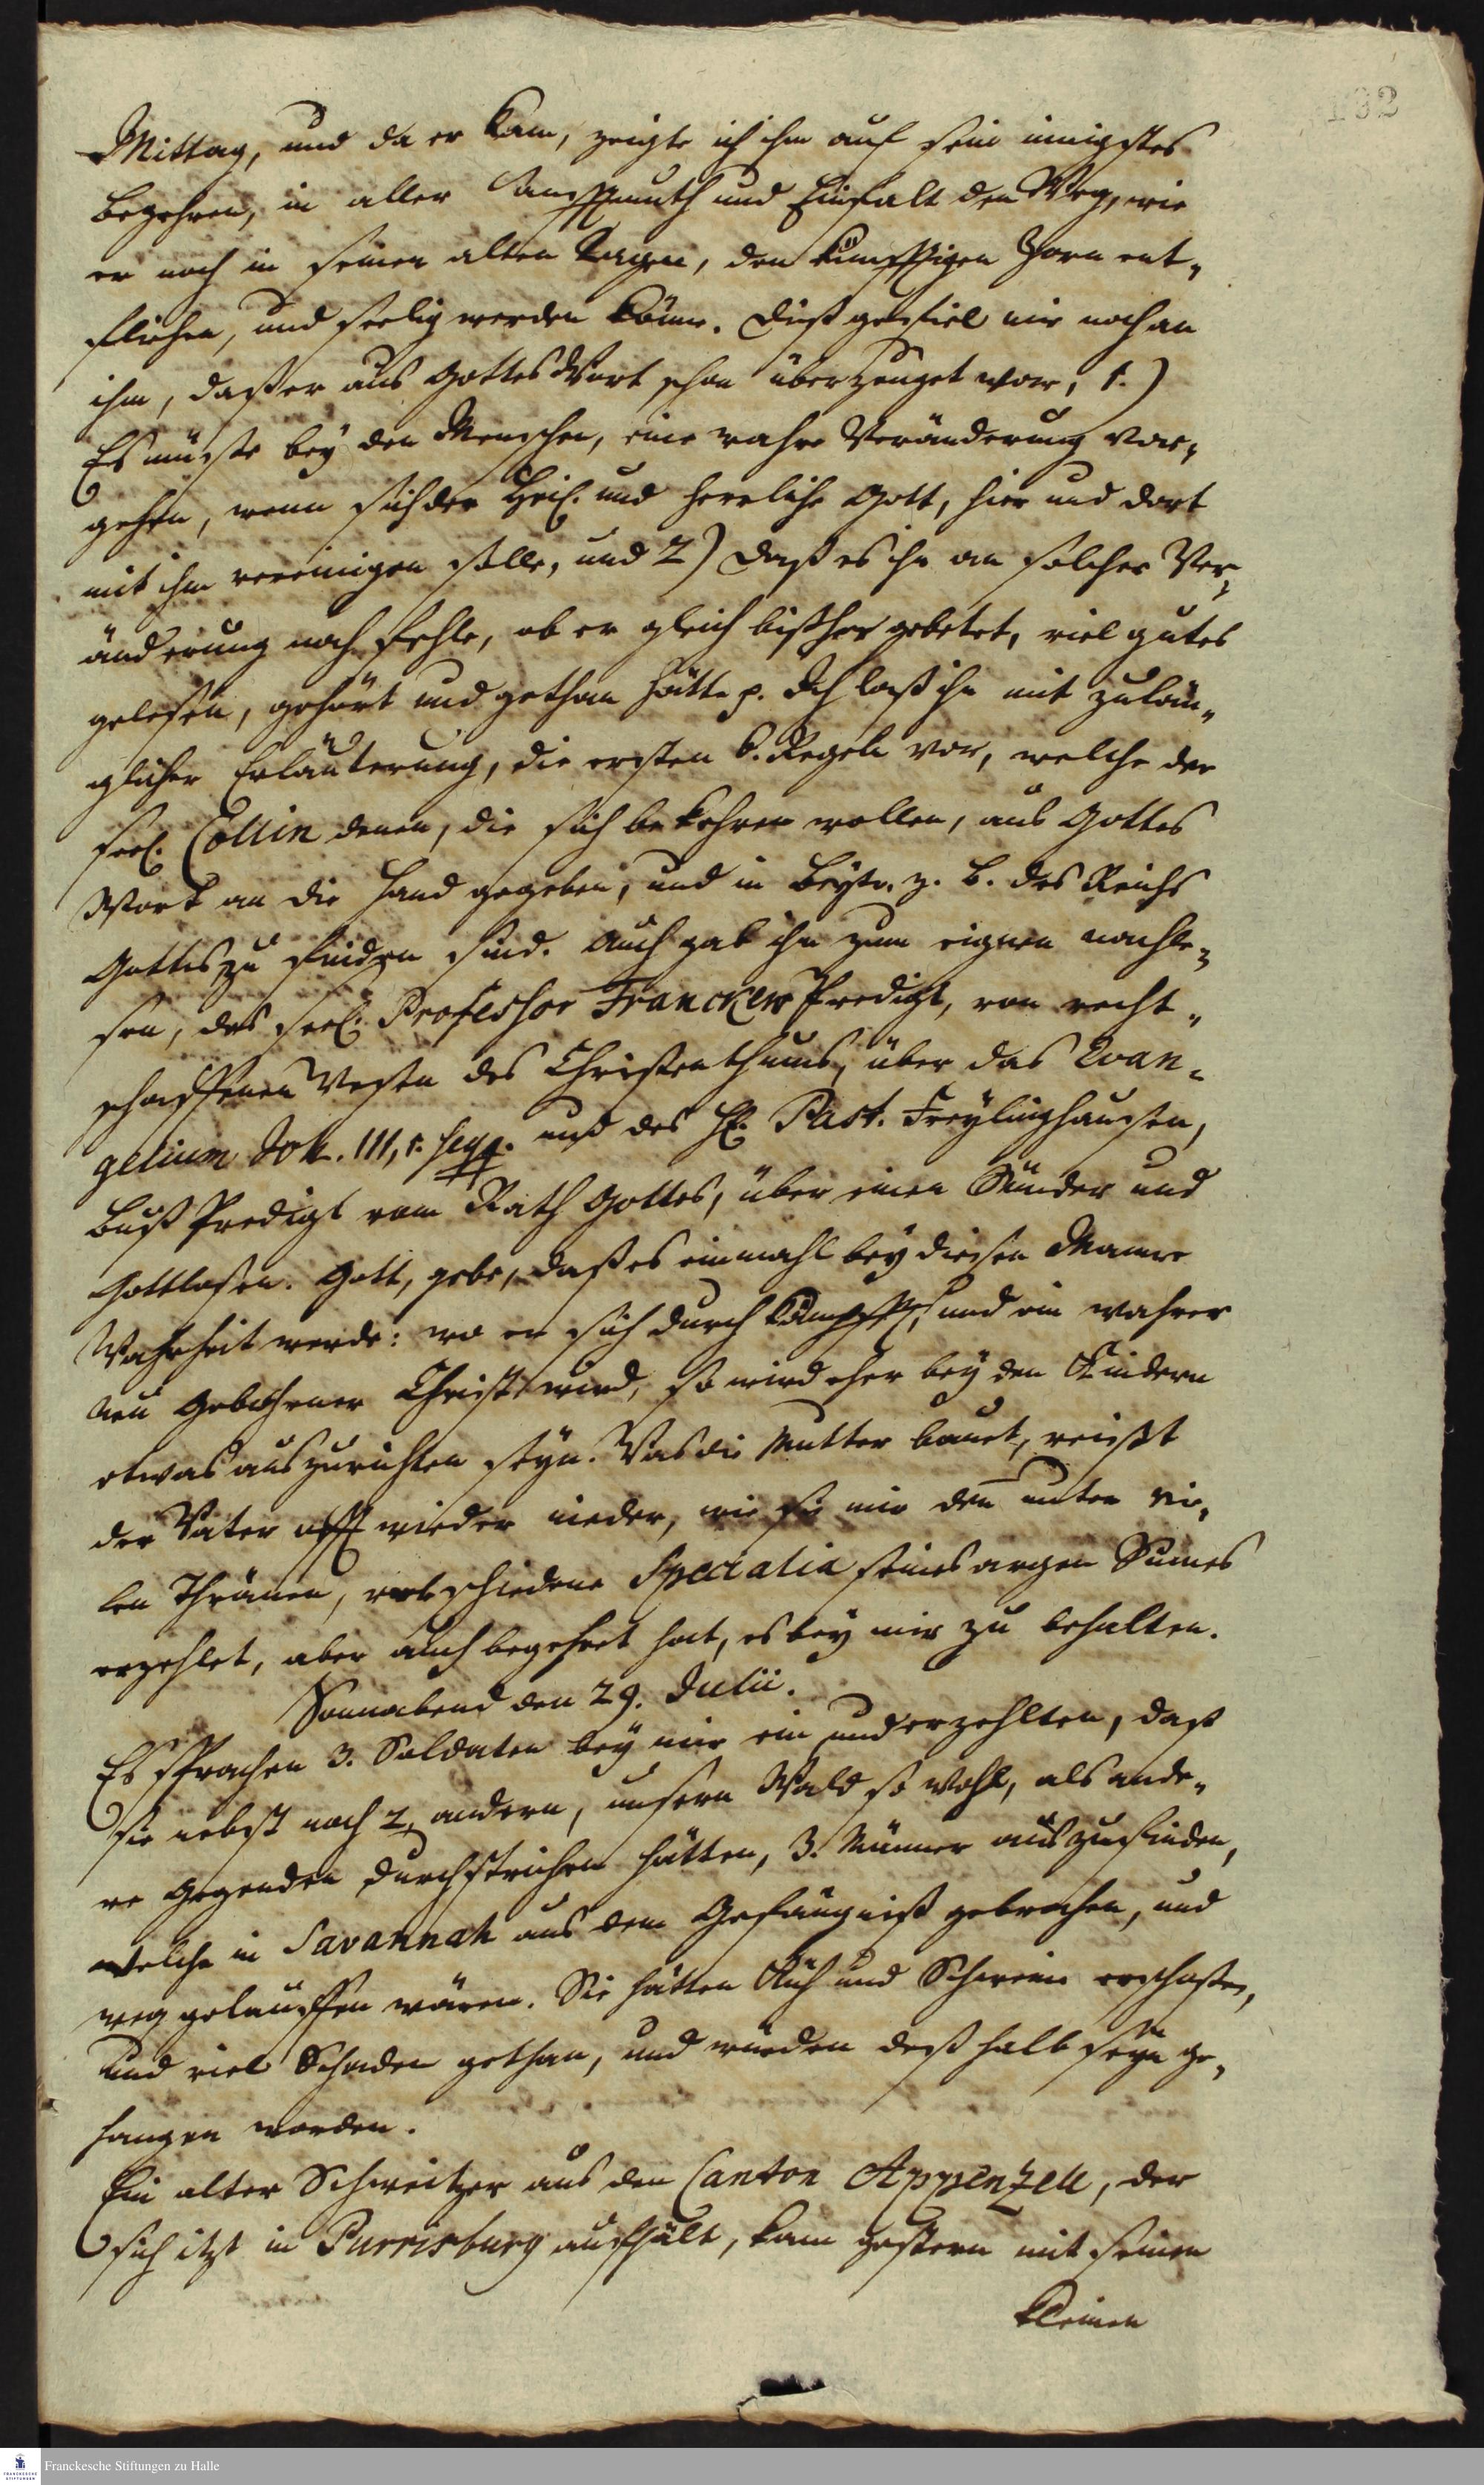 192
Mittag, und da er kam, zeigte ich ihm auf sein innigstes
begehren, in aller Sanfftmuth und Einfalt den Weg, wie
er noch in seinen alten Tagen, den künfftigen Zorn ent„
fliehen, und seelig werden könne. Dießt gefiel mir noch an
ihm, daß er aus Gottes Wort schon überzeuget war, 1.)
Es müste bey den Menschen, eine wahre Veränderung vor„
gehen, wenn sich der Heil. und herrliche Gott, hier und dort
mit ihm vereinigen solle, und 2) daß es ihm an solcher Ver„
änderung noch fehle, ob er gleich bißher gebetet, viel gutes
gelesen, gehört und gethan hätte p. Ich laß ihm mit zulän„
glicher Erläuterung, die ersten 6. Regeln vor, welche der
seel. Collin denen, die sich bekehren wollen, aus Gottes
Wort an die Hand gegeben, und in Beytr. z. B. des Reichs
Gottes zu finden sind. Auch gab ihm zum eignen nachle„
sen, des seel. Professor Franckens Predigt, von recht„
schaffenen Wesen des Christenthums, über das Evan„
gelium Joh. III, 1. seqq. und des H. Past. Freylinghausen,
Buß Predigt vom Rath Gottes, über einen Sünder und
Gottlosen. Gott, gebe, daß es einmahl bey diesen Manne
Wahrheit werde: wo er sich durch kämpffet, und ein wahrer
neu Gebohrner Christ wird, so wird eher bey den Kindern
etwas auszurichten seyn. Was die Mutter bauet, reißt
der Vater offt wieder nieder, wie sie mir den unter vie„
len Thränen, verschiedene Specialia seines argen Sinnes
erzehlet, aber auch begehret hat, es bey mir zu behalten.
Sonnabend den 29. Julii.
Es sprachen 3. Soldaten bey mir ein und erzehlten, daß
sie nebst noch 2 andern, unsern Wald so wohl, als ande„
re Gegenden durchstrichen hätten, 3. Männer auszufinden,
welche in Savannah aus dem Gefängniß gebrochen, und
weg gelauffen wären. Sie hätten Küh und Schweine erschossen,
und viel Schaden gethan, und würden deßhalb seyn ge„
hangen worden.
Ein alter Schweitzer aus den Canton Appenzell, der
sich itzt in Purrisburg aufhält, kam gestern mit seinen
kleinen
Franckesche Stiftungen zu Halle